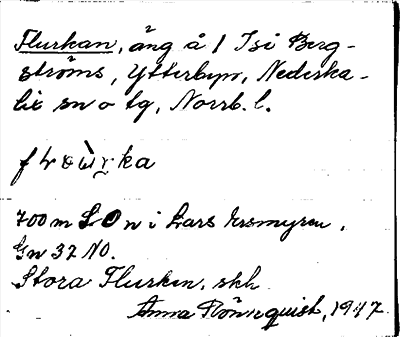 Flurkan, äng å 1 Isi Berg-
ströms, Ytterbyn, Nederka-
lix sn o tg, Norrb. l.
700 m S O n i Lars
Gn 37 NO.
Stora Flurken, skh
Anna Rönnquist, 1947